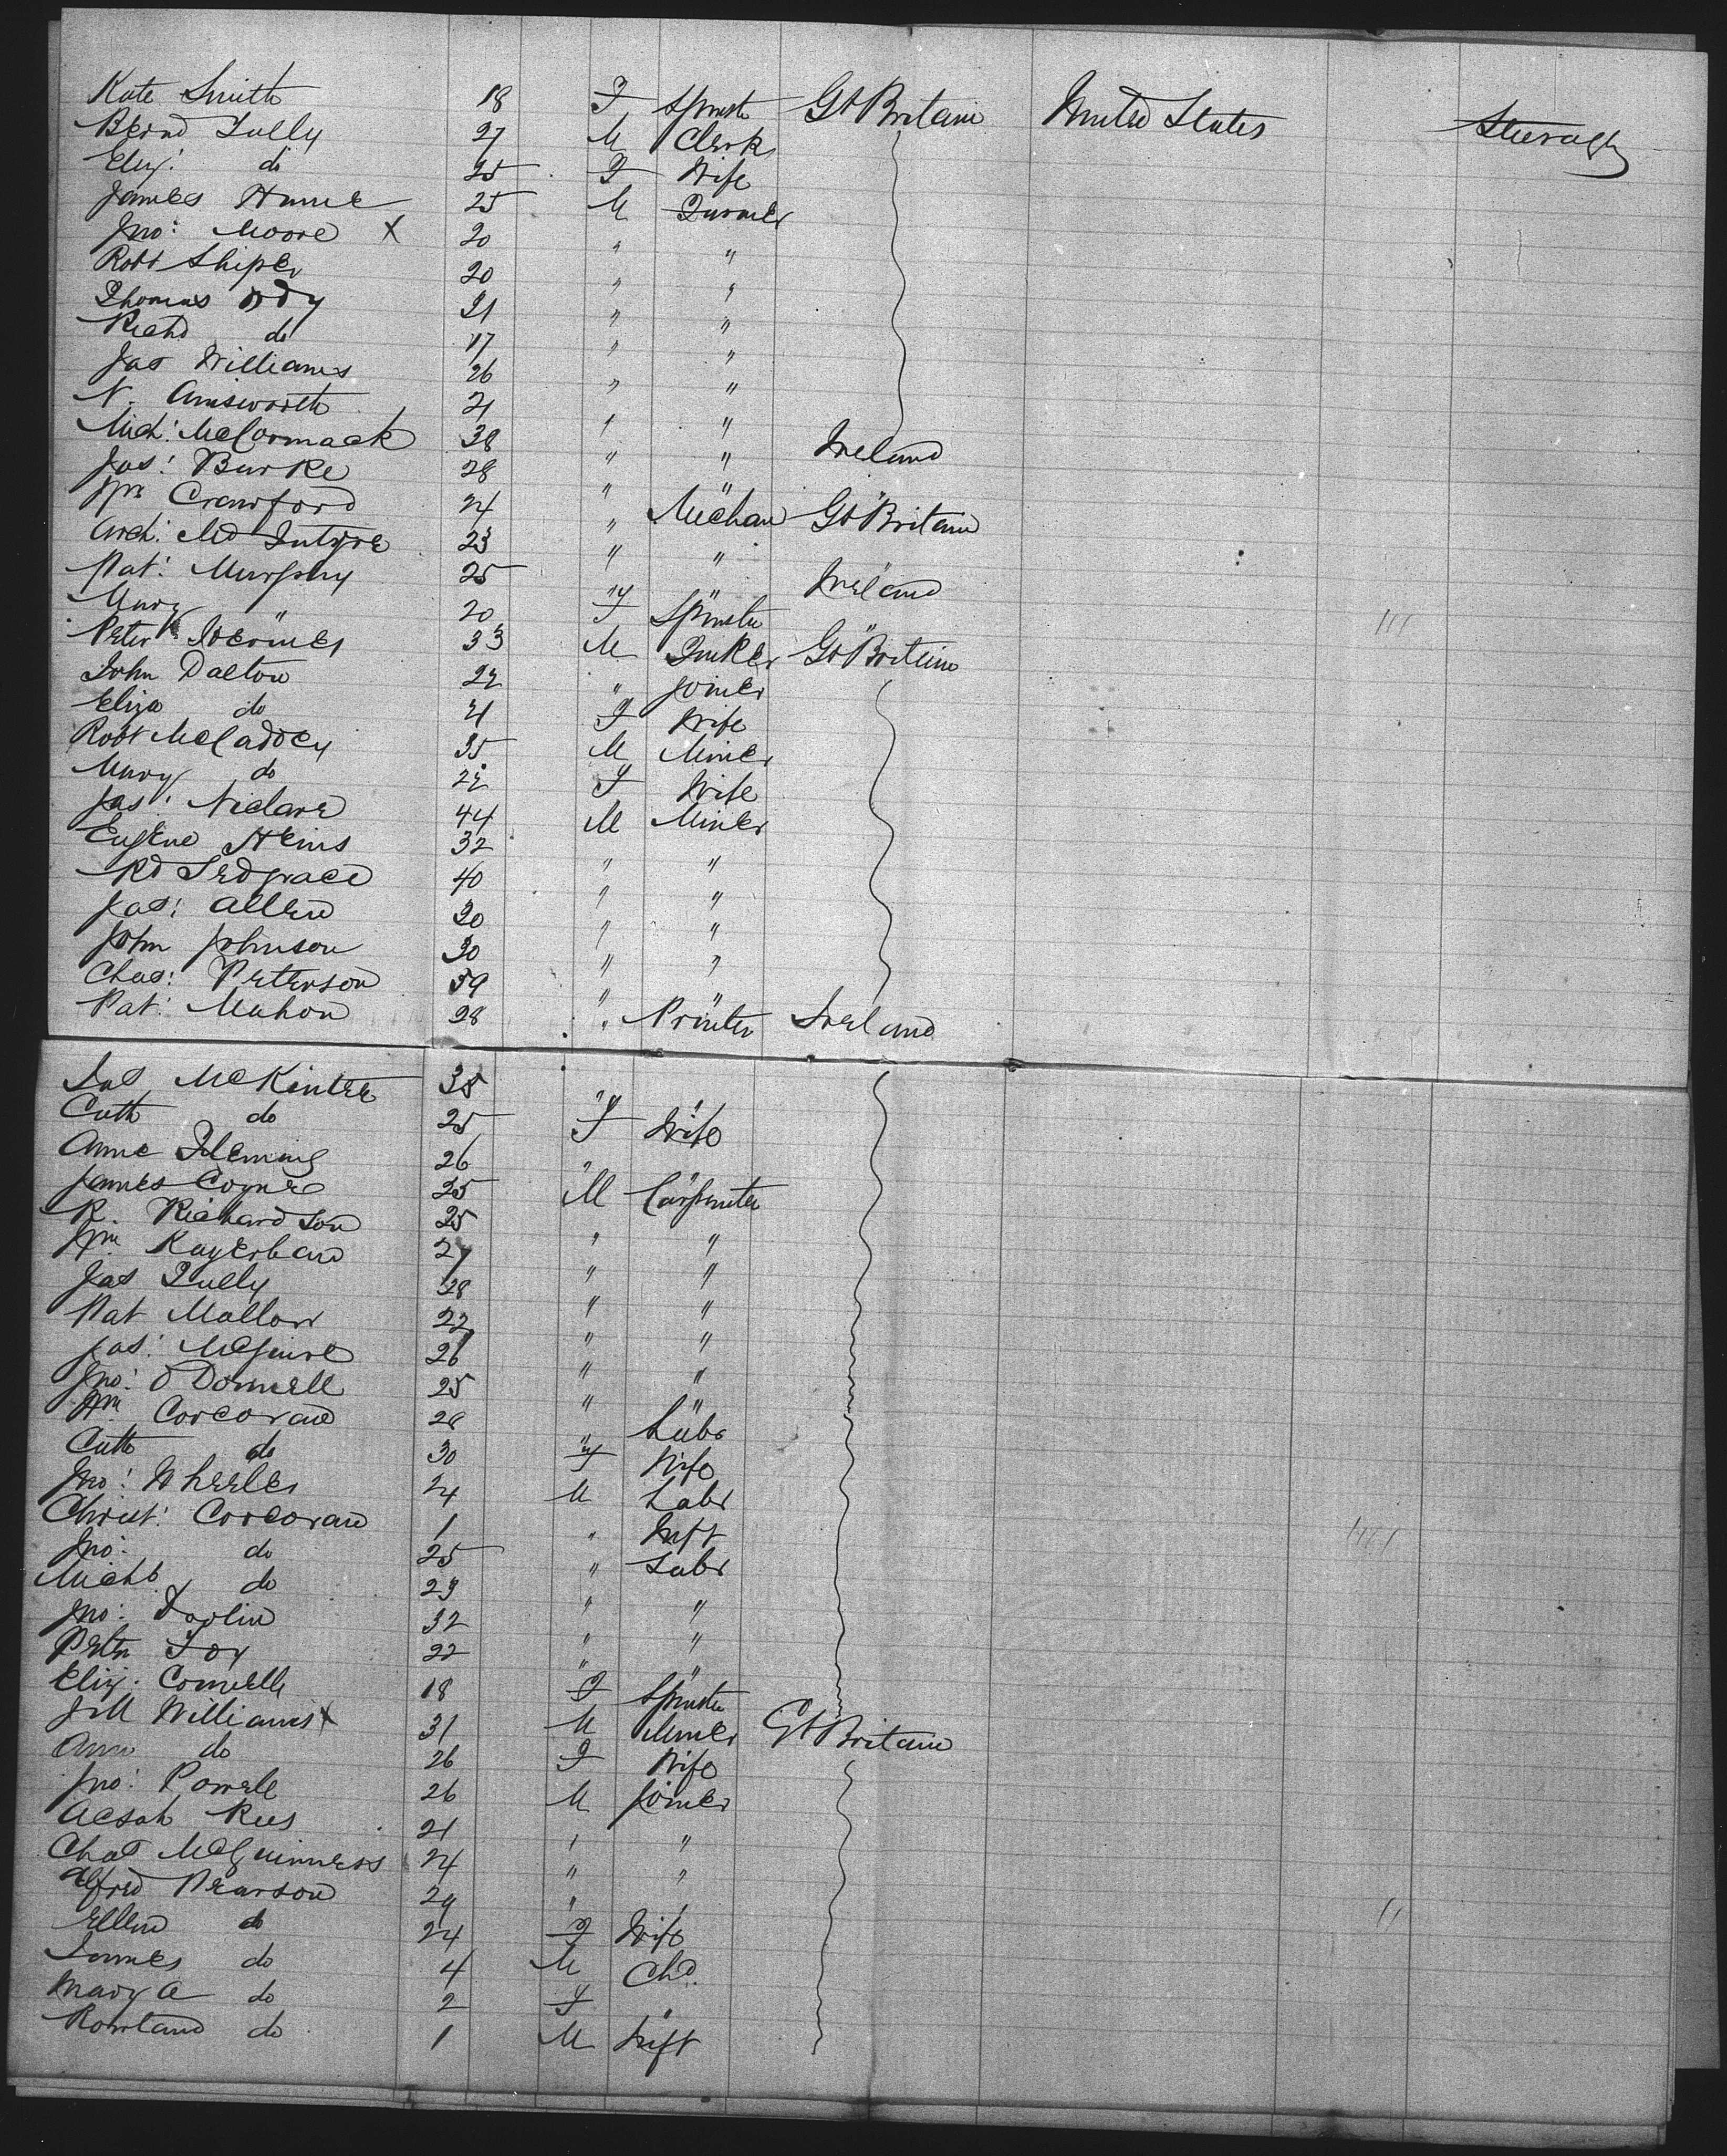 Kate Smith 18 F Spinstr Gt Britain United States Steerage
Bernd Tully 27 M Clerk
Eliz: do 25 F Wife
James Hume 25 M Farmer
Jno: Moore X 20 " "
Robt Shiper 20 " "
Thomas 21 " "
Richd do 17 " "
Jas Williams 26 " "
N. Ainsworth 21 " "
Mich: McCormack 38 " " Ireland
Jas: Burke 28 " " "
Wm Crawford 24 " Mechan Gt Britain
Arch: Mc Intyre 23 " " "
Pat: Murphy 25 " " Ireland
Mary " 20 F Spinstr "
Peter 33 M Gt Britain
John Dalton 22 " Joiner
Eliza do 21 F Wife
Robt McCaddey 35 M Miner
Mary do 22 F Wife
Jas: 44 M Miner
Eugene 32 " "
Rd Sedgrace 40 " "
Jas: Allen 30 " "
John Johnson 30 " "
Chas: Peterson 39 " "
Pat: Mahon 28 " Printer Ireland
Jas McKintee 35 " "
Cath do 25 F Wife
Anne Fleming 26 " "
James Coyne 25 M Carpenter
R. Richardson 25 " "
Wm 27 " "
Jas Tully 28 " "
Pat Mallon 22 " "
Jas: McGuire 26 " "
Jno: O'Donnell 25 " "
Wm Corcoran 28 " Labr
Cath do 30 F Wife
Jno: Wheeler 24 M Labr
Christ: Corcoran 1 " Inft
Jno: do 25 " Labr
Michl do 23 " "
Jno: 32 " "
Peter Foy 22 " "
Eliz: Connell 18 F Spinstr
J M Williams X 31 M Miner Gt Britain
Ann do 26 F Wife
Jno: Powell 26 M Joiner
Acsah Rees 21 " "
Chas McGuinness 24 " "
Alfred Pearson 29 " "
Ellen do 24 F Wife
James do 4 M Chd.
Mary A do 2 F "
Rowland do 1 M Inft